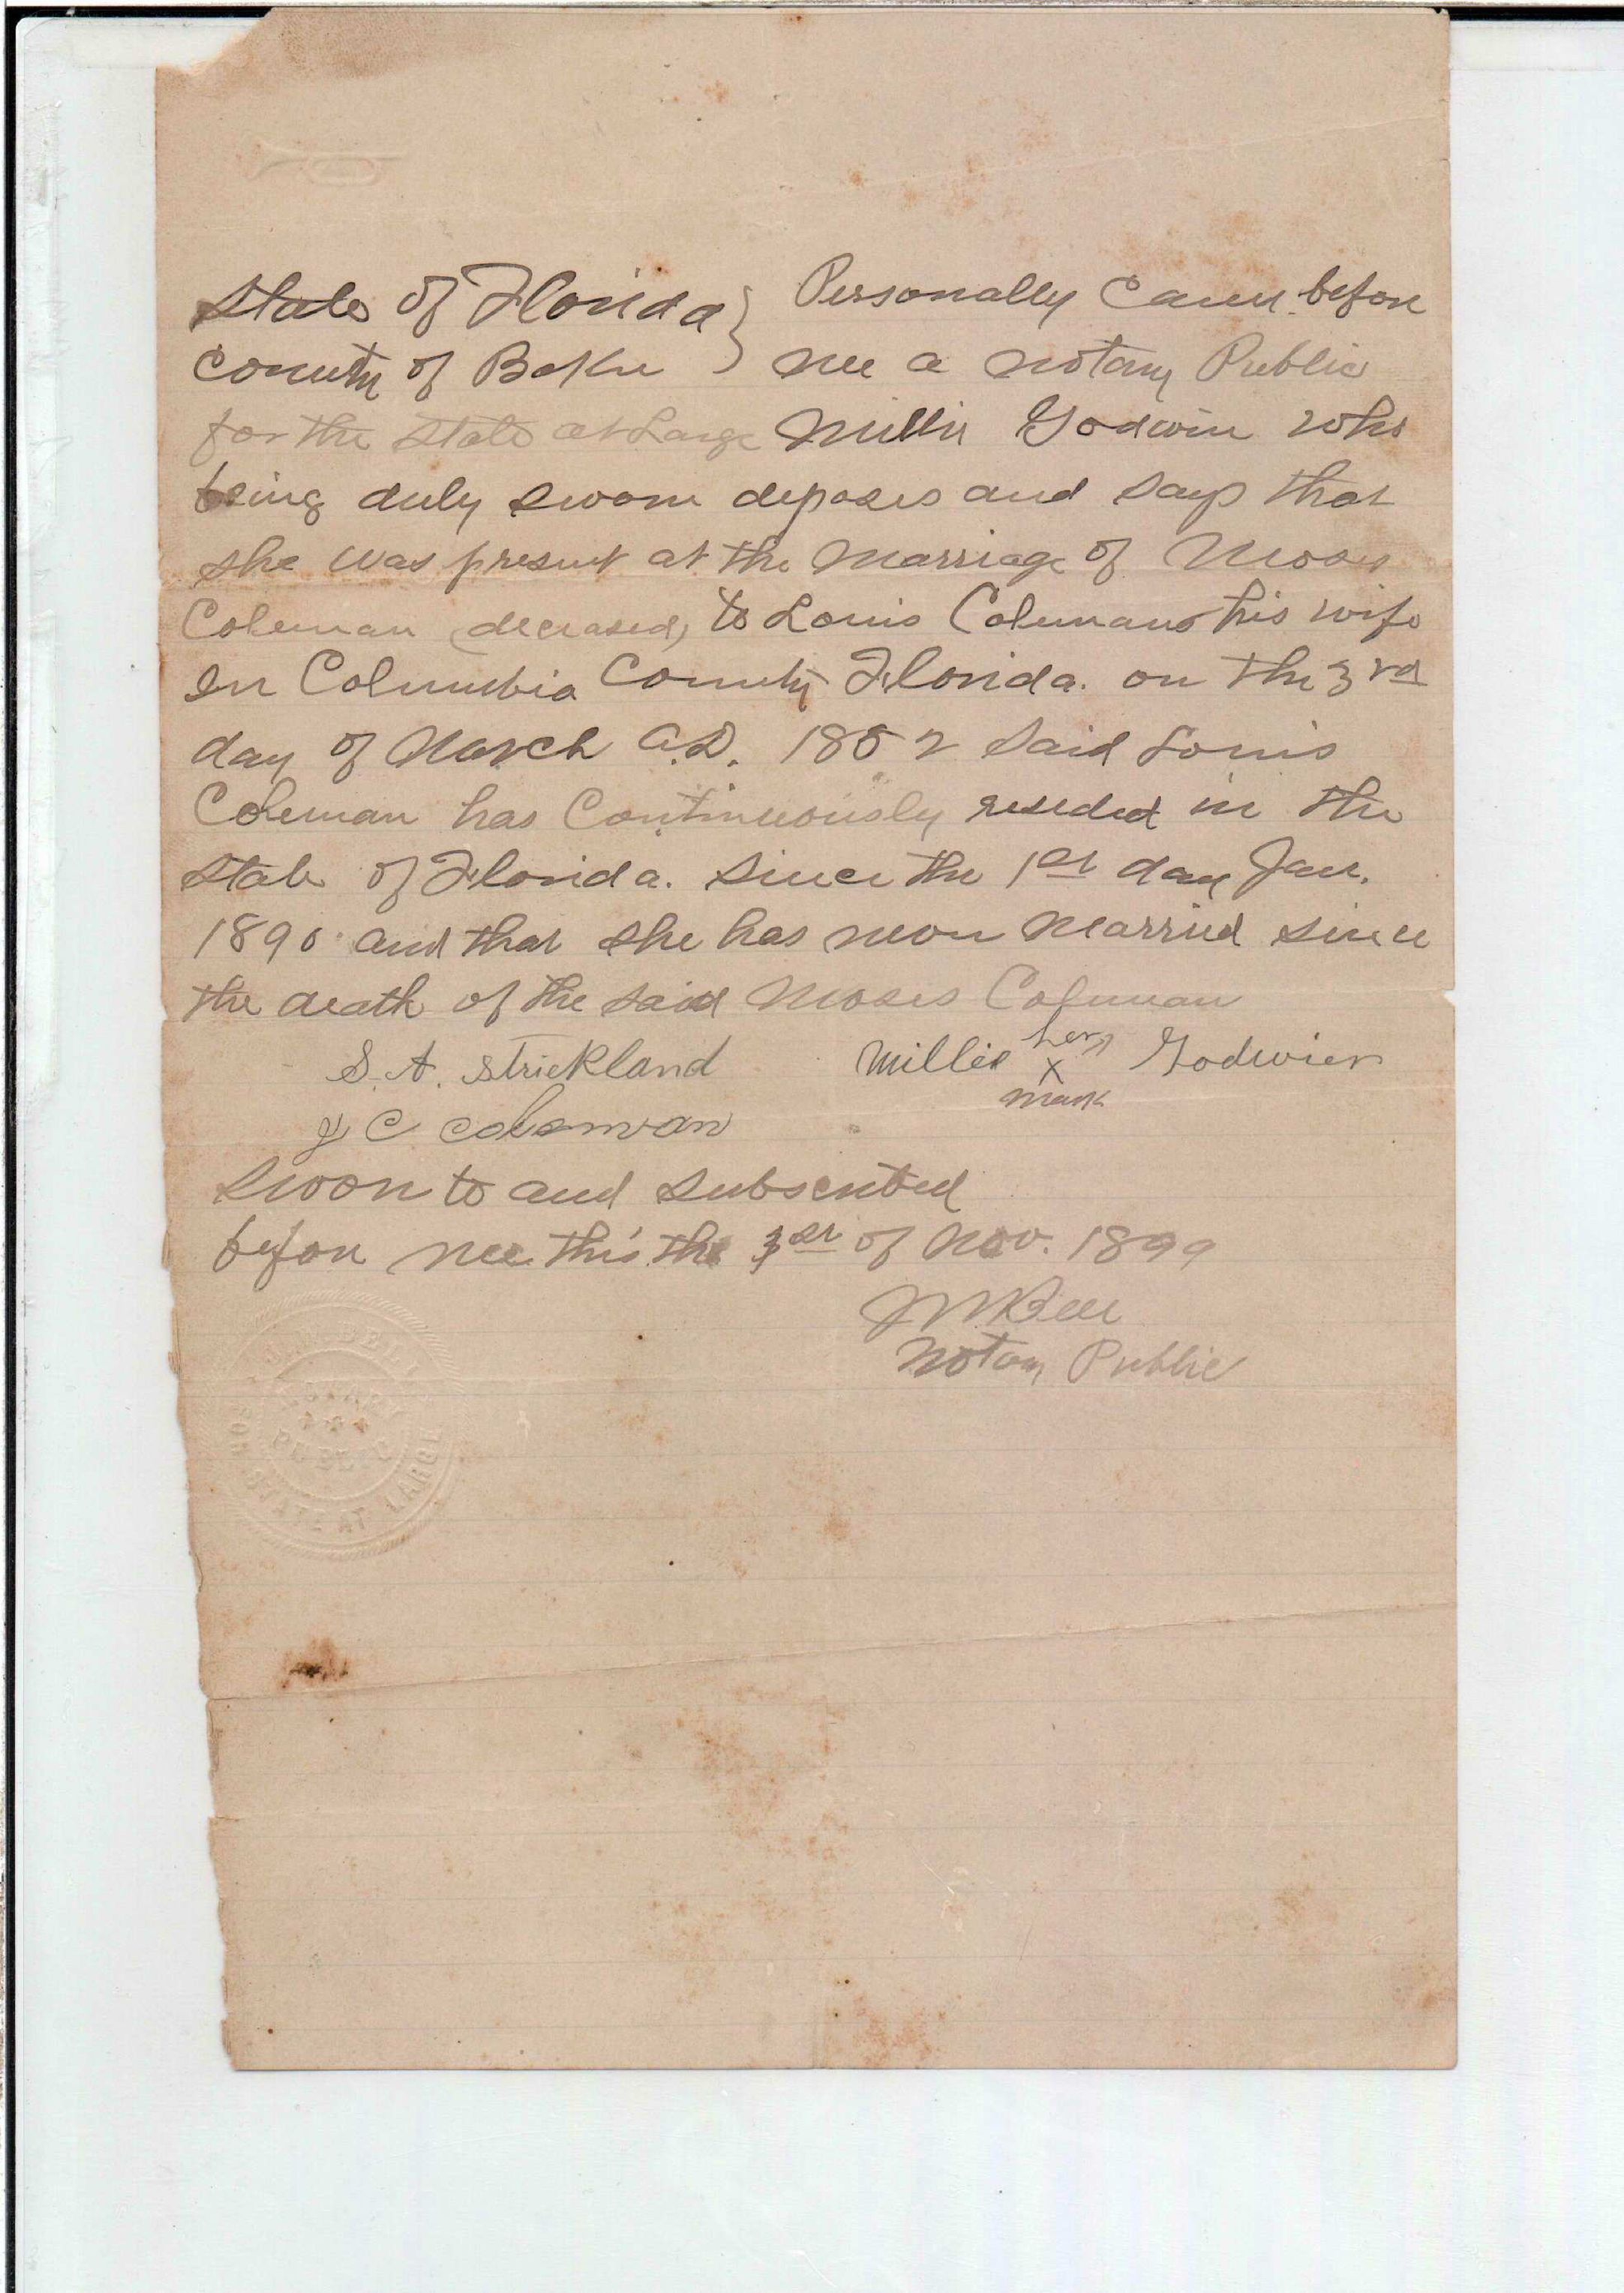 State of Florida } Personally Came before
County of Baker } me a Notary Public
for the State at Large Millie Godwin who
being duly sworn deposes and says that
she was present at the Marriage of Moses
Coleman (deceased) to Louis Coleman his wife
in Columbia County Florida. on the 3rd
day of March A.D. 1852 said Louis
Coleman has Continuously reseded in the
State of Florida. Since the 1st day Jan.
1890 and that she has never married since
the death of the said Moses Coleman
S. A. Strickland Millie her x mark Godwin
J C Coleman
Sworn to and subscribed
before me this the 3st of Nov. 1899
J M Bell
Notary Public
J. M. BELL
NOTARY
PUBLIC
FOR STATE AT LARGE